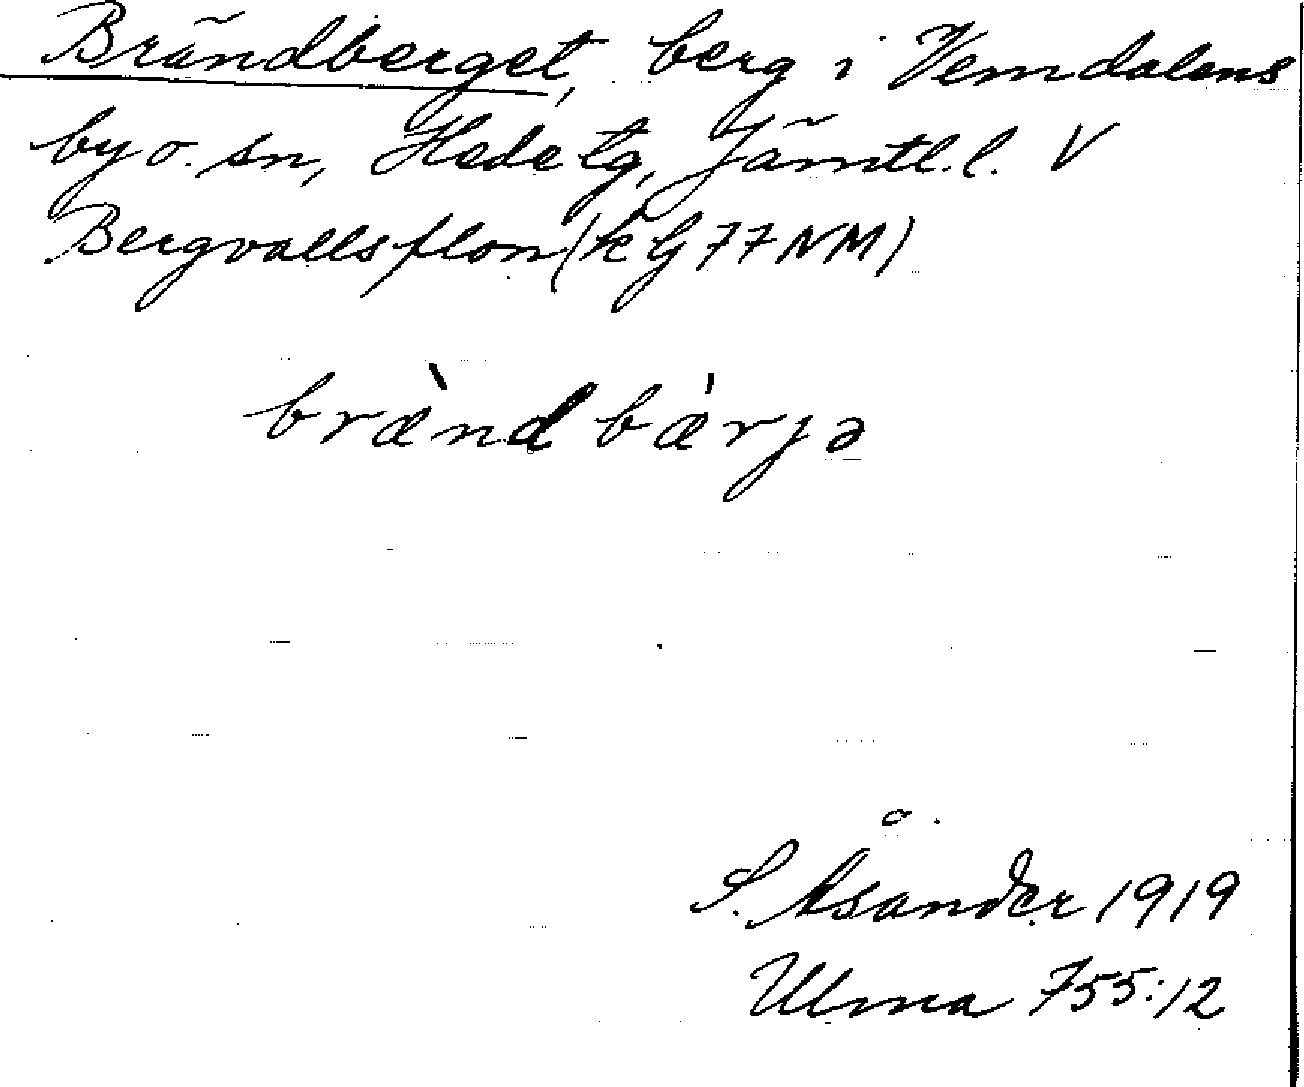 Brändberget, berg i Vemdalens
by o. sn, Hede tg, Jämtl. l. V
Bergvallsflon (k G 77 NM)
brænd bærjə
S. Åsander 1919
Ulma 755:12